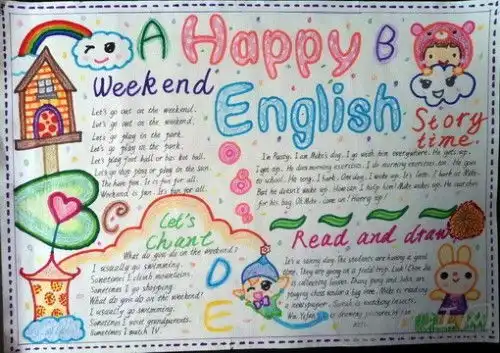 A Happy B
English
Weekend
Let's go out on the weekend.
Let's go out on the weekend.
Let's go play in the park.
Let's go play in the park.
Let's play foot ball or bas ket ball.
Let's go shop ping or play on the sand.
The have fun. It is fun for all.
Weekend is fun. It's fun for all.
Story time
I'm Parry. I am Mike's dog. I go with him everywhere. He gets up.
I get up. He does morning exercises. I do morning exercises, too. He goes
to school. He sings. I bark. One day, I wake up. It's late. I bark at Mike.
But he doesn't wake up. How can I help him? Mike wakes up. He searches
for his bag. Oh Mike, come on! Hurry up!
C
Let's Chant
What do you do on the weekend?
I usually go swimming.
Sometimes I climb mountains.
Sometimes I go shopping.
What do you do on the weekend?
I usually go swimming.
Sometimes I visit grandparents.
Sometimes I watch TV.
D
E
Read and draw
It's a sunny day. The students are having a good
time. They are going on a field trip. Look! Chen Jie
is collecting leaves. Zhang Peng and John are
playing chess under a big tree. Mike is reading
a newspaper. Sarah is watching insects.
Wu Yifan is drawing pictures.